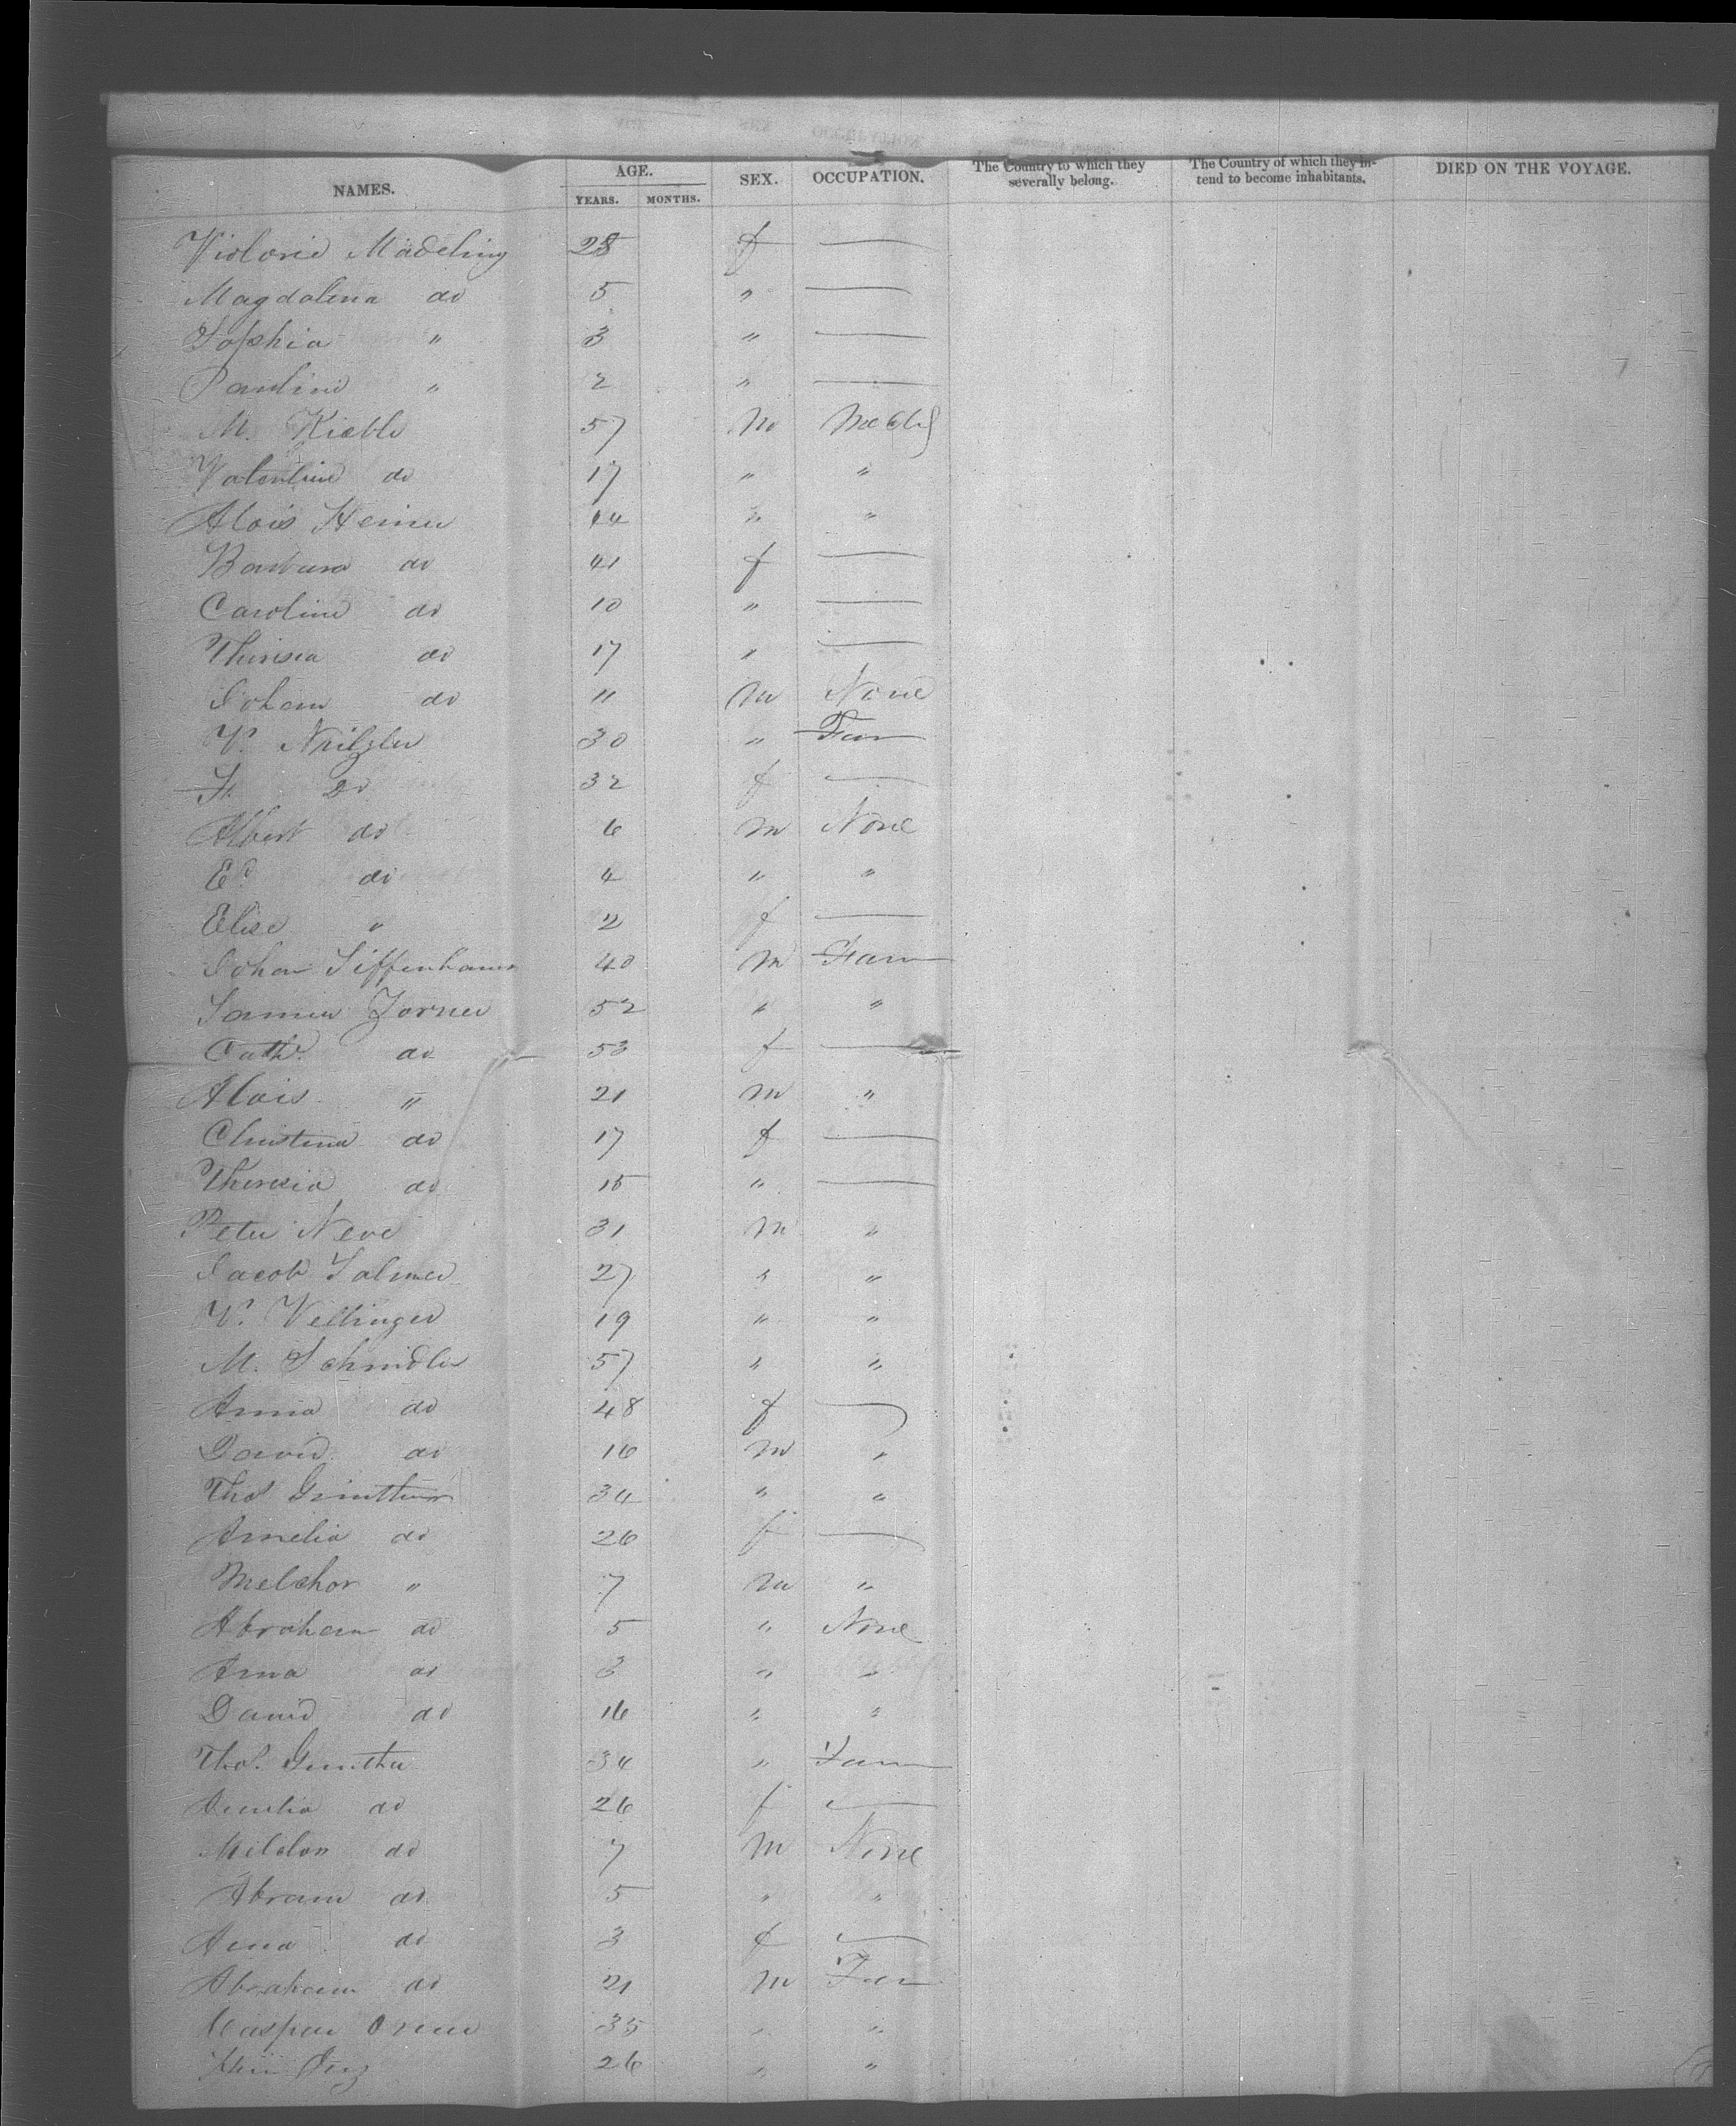 NAMES. AGE. SEX. OCCUPATION. The Country to which they severally belong. The Country of which they intend to become inhabitants. DIED ON THE VOYAGE.
YEARS. MONTHS.
Victorie Mädeling 28 f —
Magdalena do 5 " —
Sophia " 3 " —
Pauline " 2 " —
M. Kieble 57 m
Valentine do 17 " "
Alois Heiner 14 " "
Barbara do 41 f —
Caroline do 10 " —
Theresia do 17 " —
Joham do 11 m None
V. 30 " Farm
Fr do 32 f —
Albert do 6 m None
Ed do 4 " "
Elise " 2 f —
Johan Siffenhauer 40 m Farm
Zorner 52 " "
Cath. do 53 f —
Alois " 21 m "
Christina do 17 f —
Theresia do 15 " —
Peter Neve 31 m "
Jacob 27 " "
V. Vellinger 19 " "
M. Schindler 57 " "
Anna do 48 f —
David do 16 m "
Thos Gunther 34 " "
Amelia do 26 f —
Melchor " 7 m "
Abraham do 5 " None
Anna do 3 " "
David do 16 " "
Thos. Gunther 34 " Farm
Amelia do 26 f —
do 7 m None
Abram do 5 " "
Anna do 3 f —
Abraham do 21 m Farm
Caspar 35 " "
26 " "